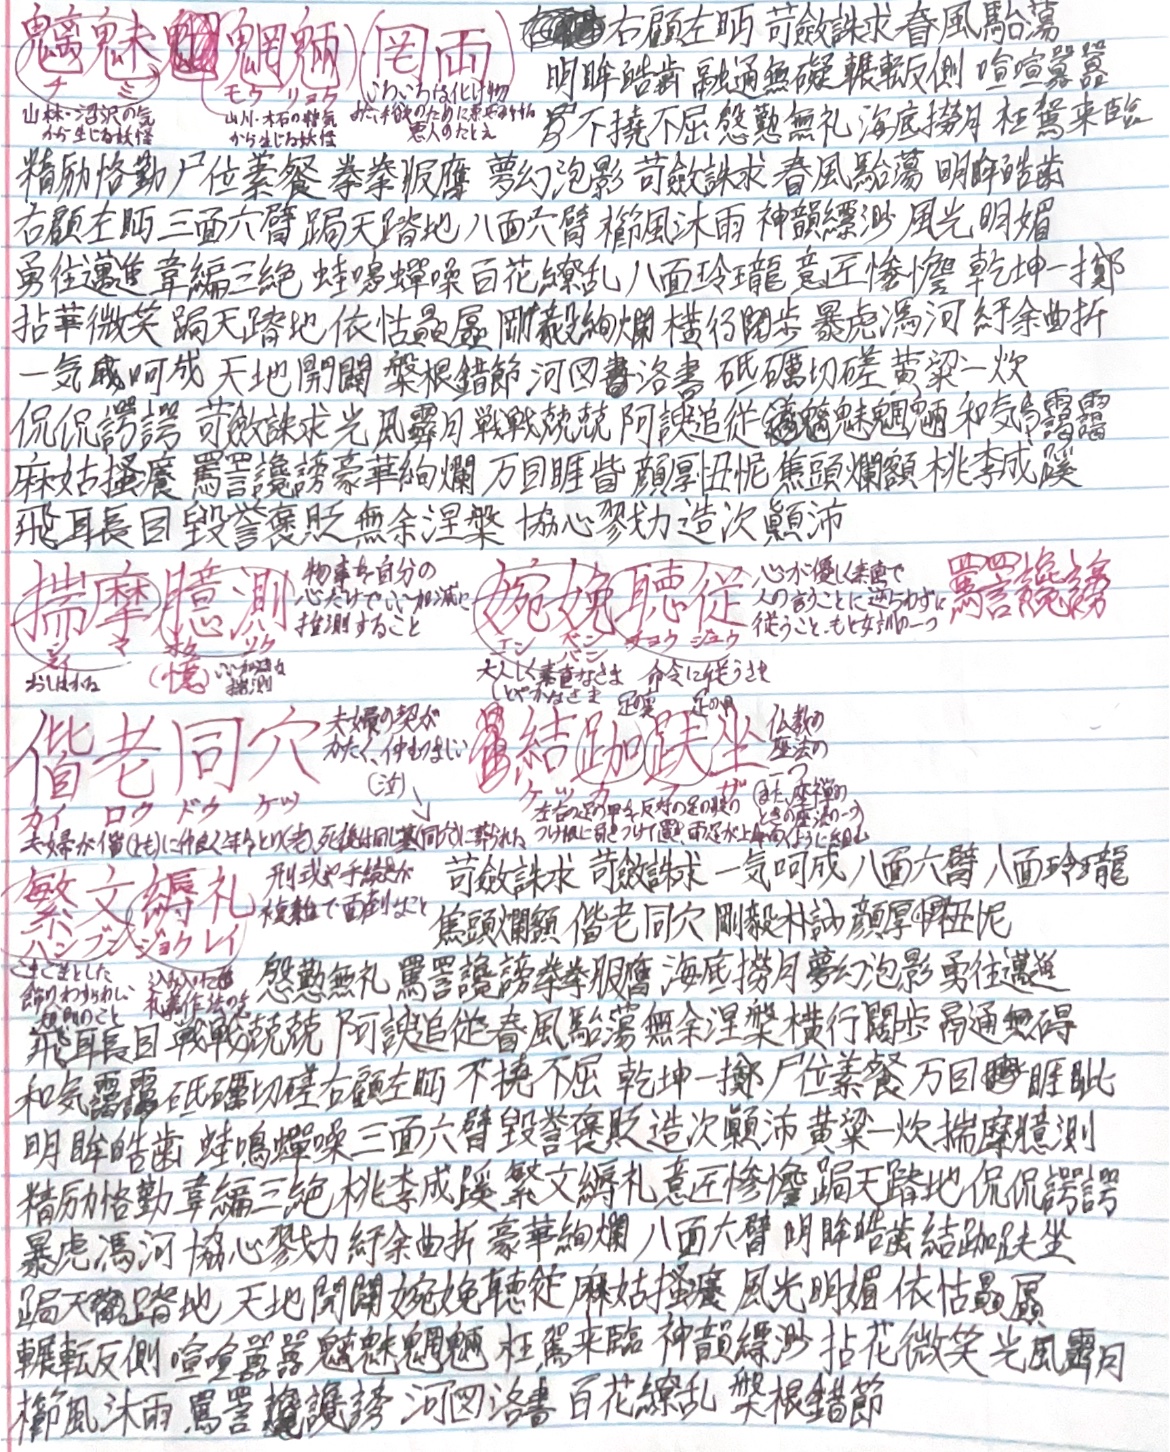 魑魅魍魎(罔両) 右顧左眄 苛斂誅求 春風駘蕩
チ ミ モウ リョウ いろいろな化け物
山林・沼沢の気から生じる妖怪
山川・木石の精気から生じる妖怪
悪人のたとえ
明眸皓歯 融通無礙 輾転反側 喧喧囂囂
不撓不屈 慇懃無礼 海底撈月 枉駕来臨
精励恪勤 尸位素餐 拳拳服膺 夢幻泡影 苛斂誅求 春風駘蕩 明眸皓歯
右顧左眄 三面六臂 跼天蹐地 八面六臂 櫛風沐雨 神韻縹渺 風光明媚
勇往邁進 韋編三絶 蛙鳴蟬噪 百花繚乱 八面玲瓏 意匠惨憺 乾坤一擲
拈華微笑 跼天蹐地 依怙贔屓 絢爛 横行闊歩 暴虎馮河 紆余曲折
一気呵成 天地開闢 槃根錯節 河図洛書 砥礪切磋 黄粱一炊
侃侃諤諤 苛斂誅求 光風霽月 戦戦兢兢 阿諛追従 魑魅魍魎 和気靄靄
麻姑搔痒 罵詈讒謗 豪華絢爛 万目睚眥 顔厚忸怩 焦頭爛額 桃李成蹊
飛耳長目 毀誉褒貶 無余涅槃 協心戮力 造次顚沛
揣摩臆測 物事を自分の心だけでいい加減に推測すること
シイ マ オク ソク
おしはかる (憶)
婉娩聴従 心が優しく素直で人の言うことに逆らわずに従うこと。もと女訓の一つ
エン ベン チョウ ジュウ
大人しく素直なさま しとやかなさま 命令に従うさま
罵詈讒謗
偕老同穴 夫婦の契がかたく、仲むつまじい
カイ ロウ ドウ ケツ
夫婦が偕(とも)に仲良く年をとり(老)、死後は同じ墓(同穴)に葬られる
結跏趺坐 仏教の座法の一つ
足の裏 足の甲
ケッ カ フ ザ
繁文縟礼 形式や手続きが複雑で面倒なこと
ハン ブン ジョク レイ
苛斂誅求 苛斂誅求 一気呵成 八面六臂 八面玲瓏
焦頭爛額 偕老同穴 剛毅朴訥 顔厚忸怩
慇懃無礼 罵詈讒謗 拳拳服膺 海底撈月 夢幻泡影 勇往邁進
飛耳長目 戦戦兢兢 阿諛追従 春風駘蕩 無余涅槃 横行闊歩 通無碍
和気靄靄 砥礪切磋 右顧左眄 不撓不屈 乾坤一擲 尸位素餐 万目睚眦
明眸皓歯 蛙鳴蟬噪 三面六臂 毀誉褒貶 造次顚沛 黄粱一炊 揣摩臆測
精励恪勤 韋編三絶 桃李成蹊 繁文縟礼 意匠惨憺 跼天蹐地 侃侃諤諤
暴虎馮河 協心戮力 紆余曲折 豪華絢爛 八面六臂 明眸皓歯 結跏趺坐
跼天蹐地 天地開闢 婉娩聴従 麻姑搔痒 風光明媚 依怙贔屓
輾転反側 喧喧囂囂 魑魅魍魎 枉駕来臨 神韻縹渺 拈花微笑 光風霽月
櫛風沐雨 罵詈讒謗 河図洛書 百花繚乱 槃根錯節